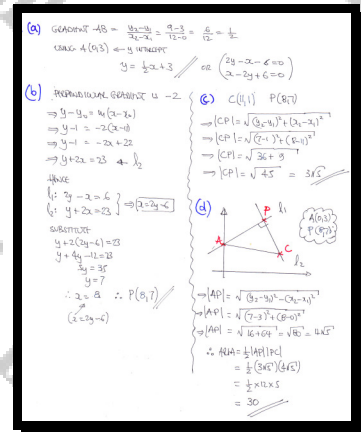 (a) GRADIENT AB = y₂-y₁/x₂-x₁ = 9-3/12-0 = 6/12 = 1/2
USING A(0,3) ← y INTERCEPT
y = ½x+3 OR (2y-x-6=0
x-2y+6=0)
(b) PERPENDICULAR GRADIENT IS -2
⇒ y-y₀ = m(x-x₀)
⇒ y-1 = -2(x-11)
⇒ y-1 = -2x+22
⇒ y+2x = 23 ← l₂
HENCE
l₁: 2y-x=6
l₂: y+2x=23 } ⇒ x=2y-6
SUBSTITUTE
y+2(2y-6)=23
y+4y-12=23
5y=35
y=7
∴ x=8 ∴ P(8,7)
(x=2y-6)
(c) C(11,1) P(8,7)
⇒ |CP| = √(y₂-y₁)²+(x₂-x₁)²
⇒ |CP| = √(7-1)²+(8-11)²
⇒ |CP| = √36+9
⇒ |CP| = √45 = 3√5
(d)
P l₁
A
C
l₂
A(0,3)
P(8,7)
⇒ |AP| = √(y₂-y₁)²-(x₂-x₁)²
⇒ |AP| = √(7-3)²+(8-0)²
⇒ |AP| = √16+64 = √80 = 4√5
∴ AREA = ½|AP||PC|
= ½(3√5)(4√5)
= ½×12×5
= 30